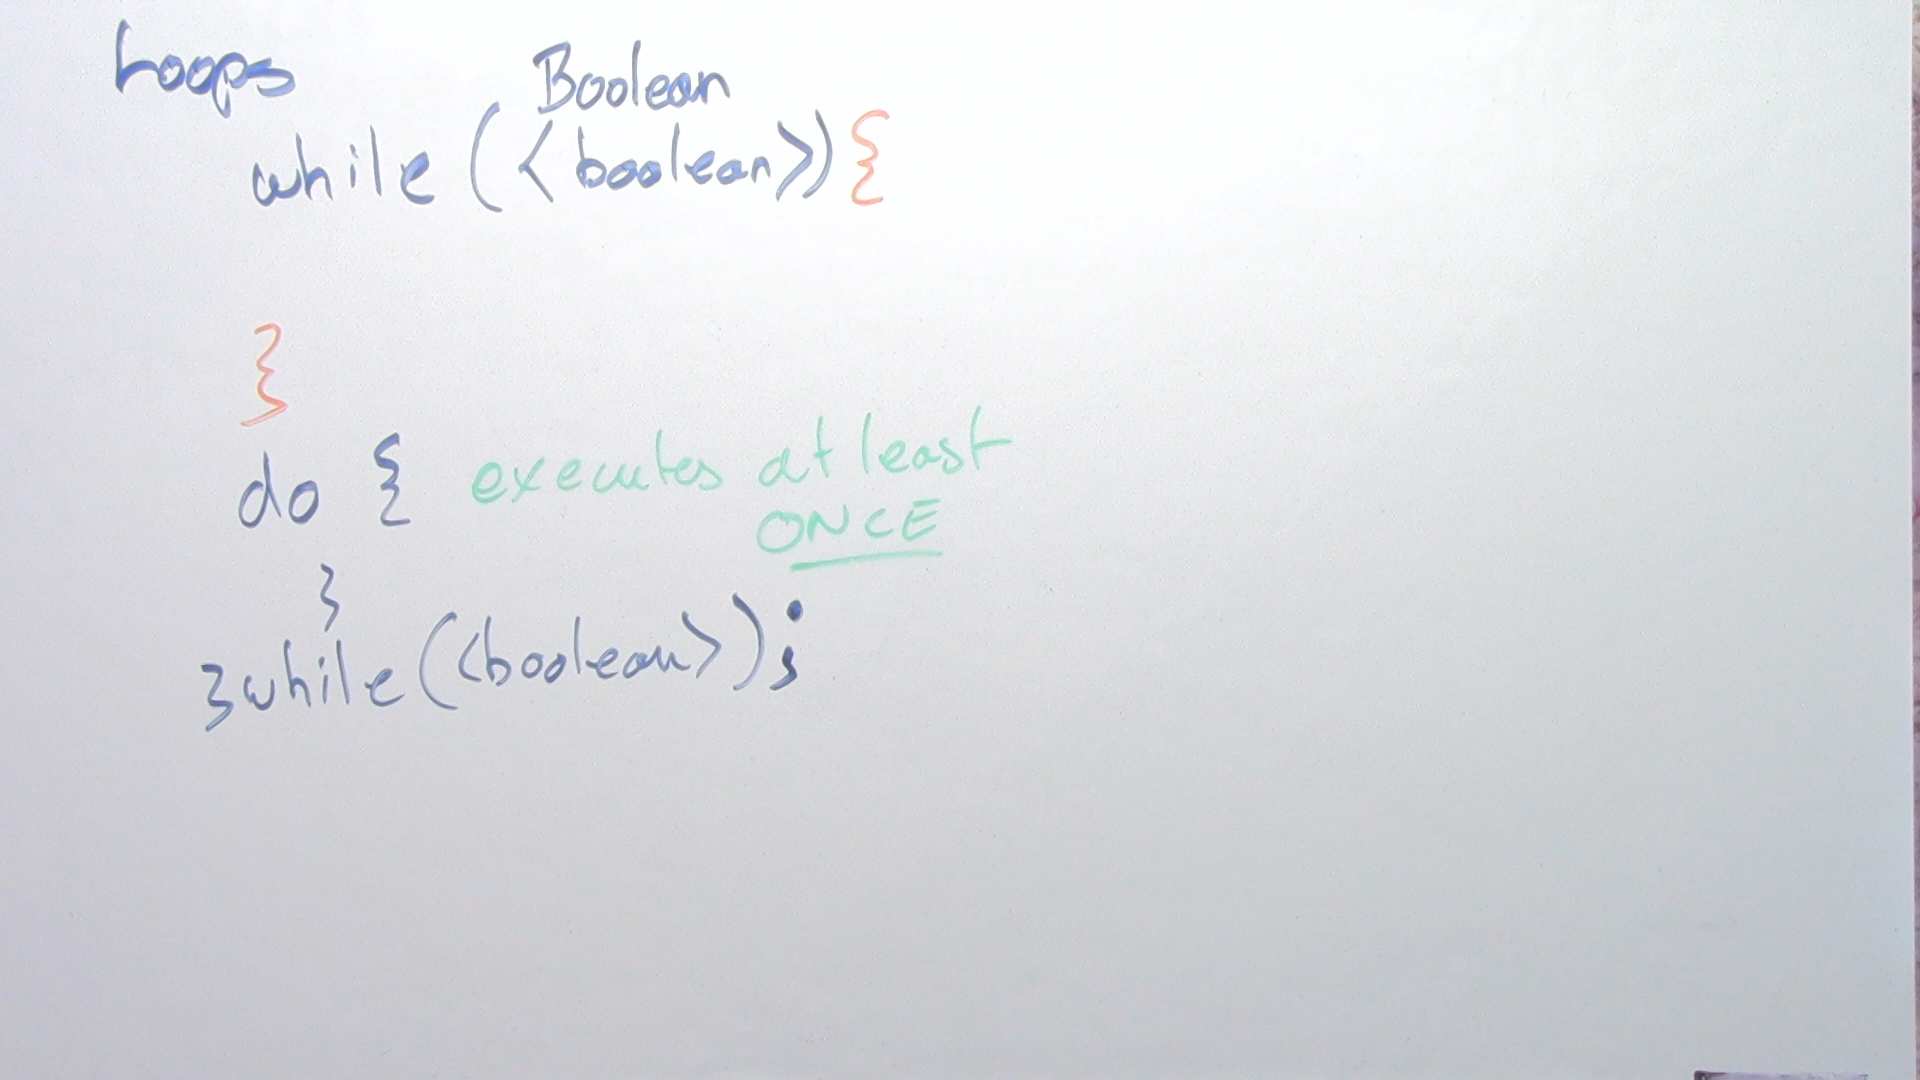 Loops
Boolean
while (<boolean>){
}
do { executes at least
ONCE
}
}while(<boolean>);